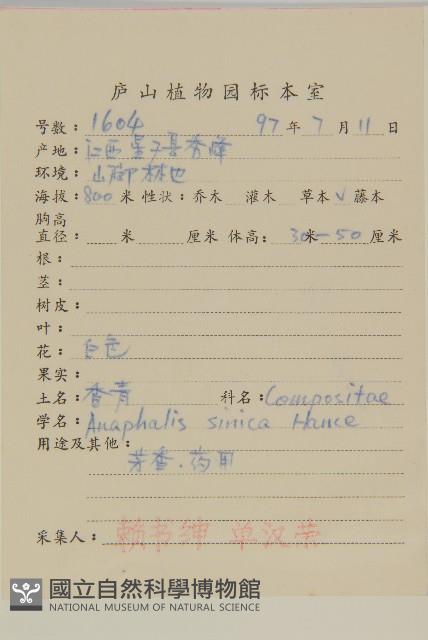 庐山植物园标本室
号数：1604 97年7月11日
产地：江西星子县秀峰
环境：山脚林边
海拔：800米 性状：乔木 灌木 草本√ 藤本
胸高
直径： 米 厘米 体高： 30米—50厘米
根：
茎：
树皮：
叶：
花：白色
果实：
土名：香青 科名：Compositae
学名：Anaphalis sinica Hance
用途及其他：
芳香．药用
采集人：赖书绅 单汉荣
國立自然科學博物館
NATIONAL MUSEUM OF NATURAL SCIENCE